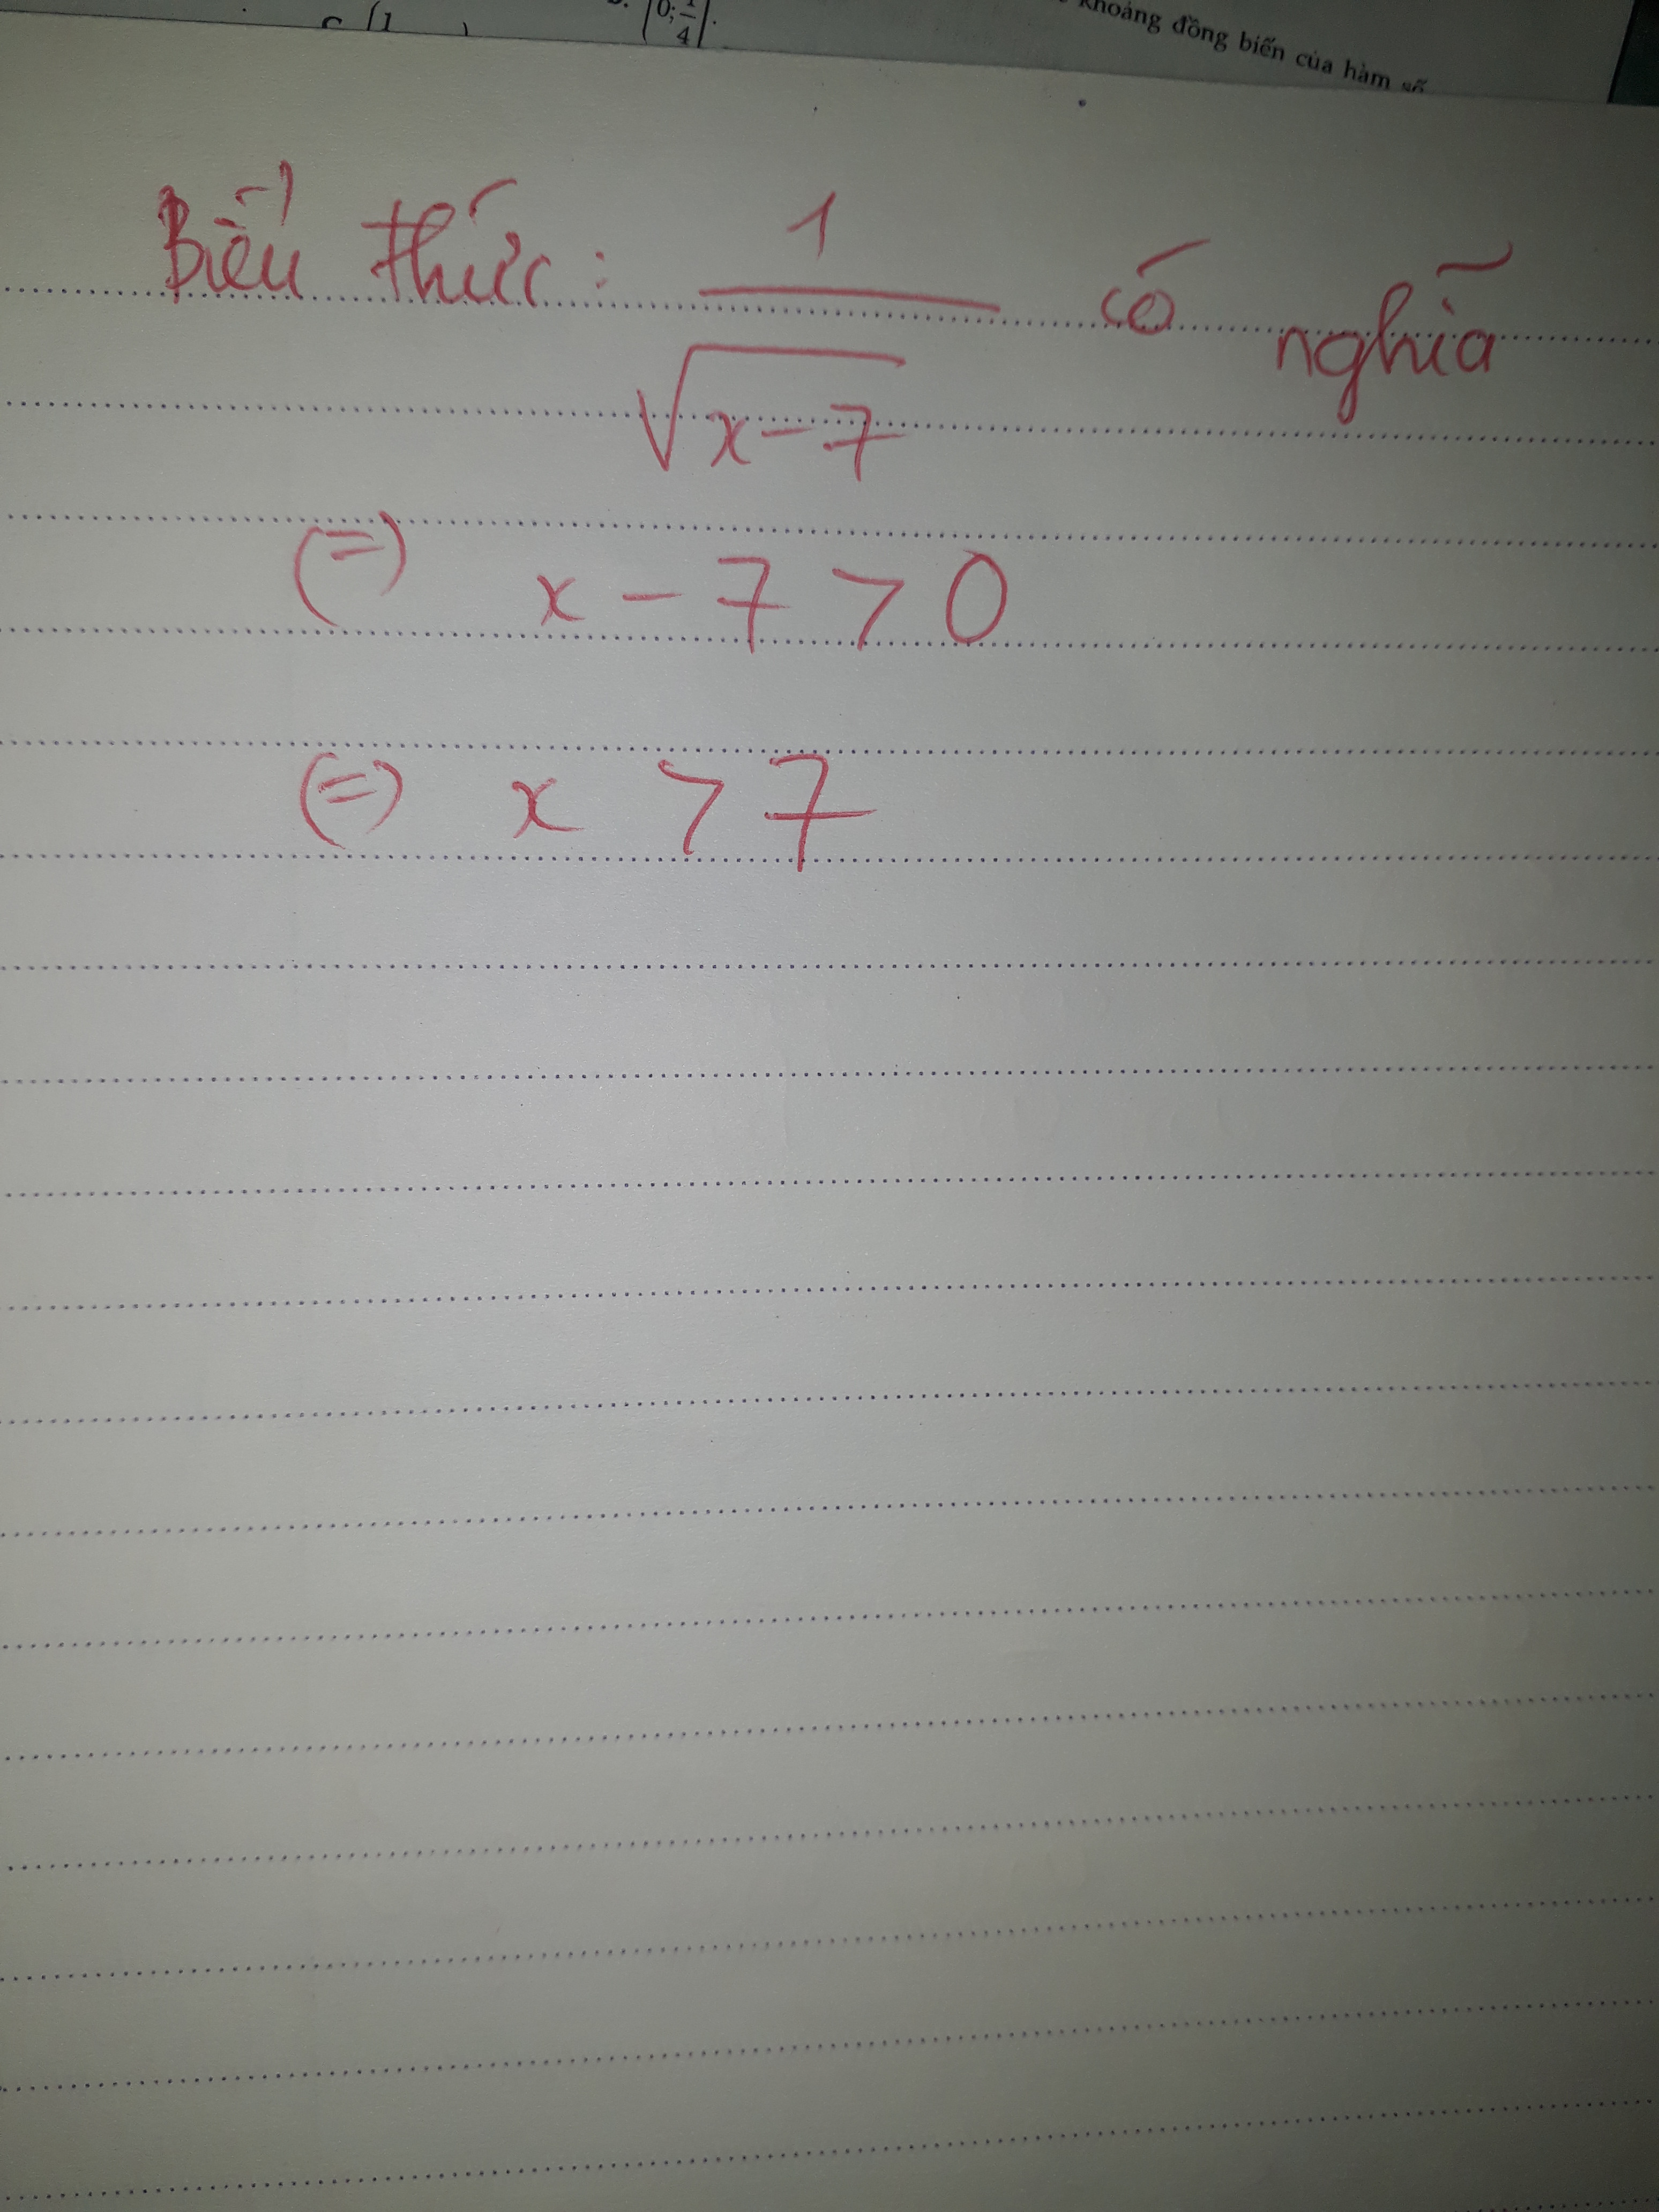 0; 1/4
khoảng đồng biến của hàm số
Biểu thức: 1/√(x-7) có nghĩa
(=) x - 7 > 0
(=) x > 7